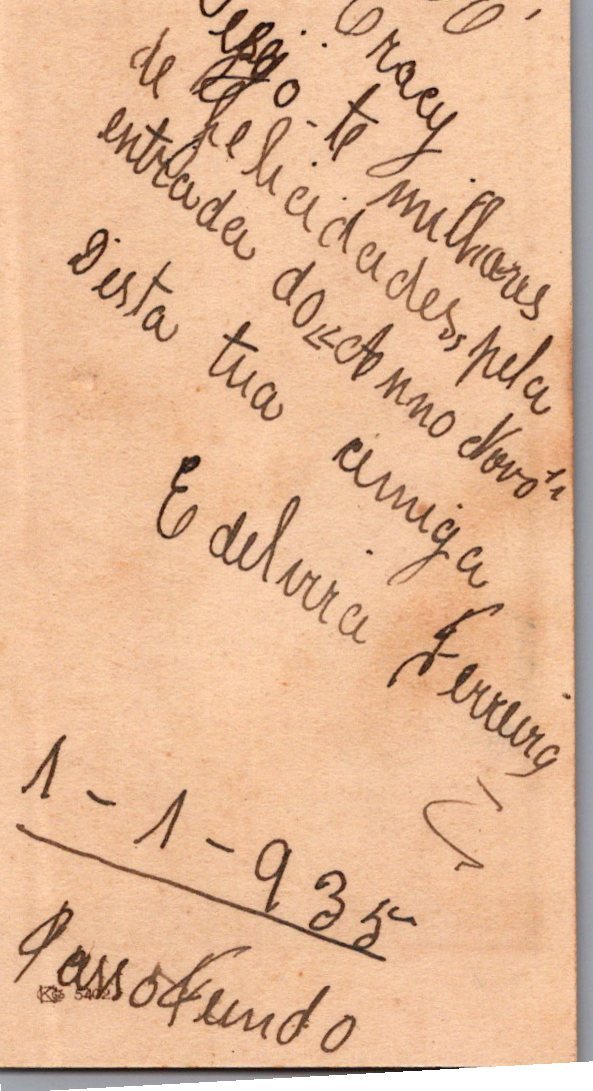 Eracy
Desejo-te milhares
de felicidades, pela
entrada do "Anno Novo"
Desta tua amiga
Edelvira Ferreira
1-1-935
Passo Fundo